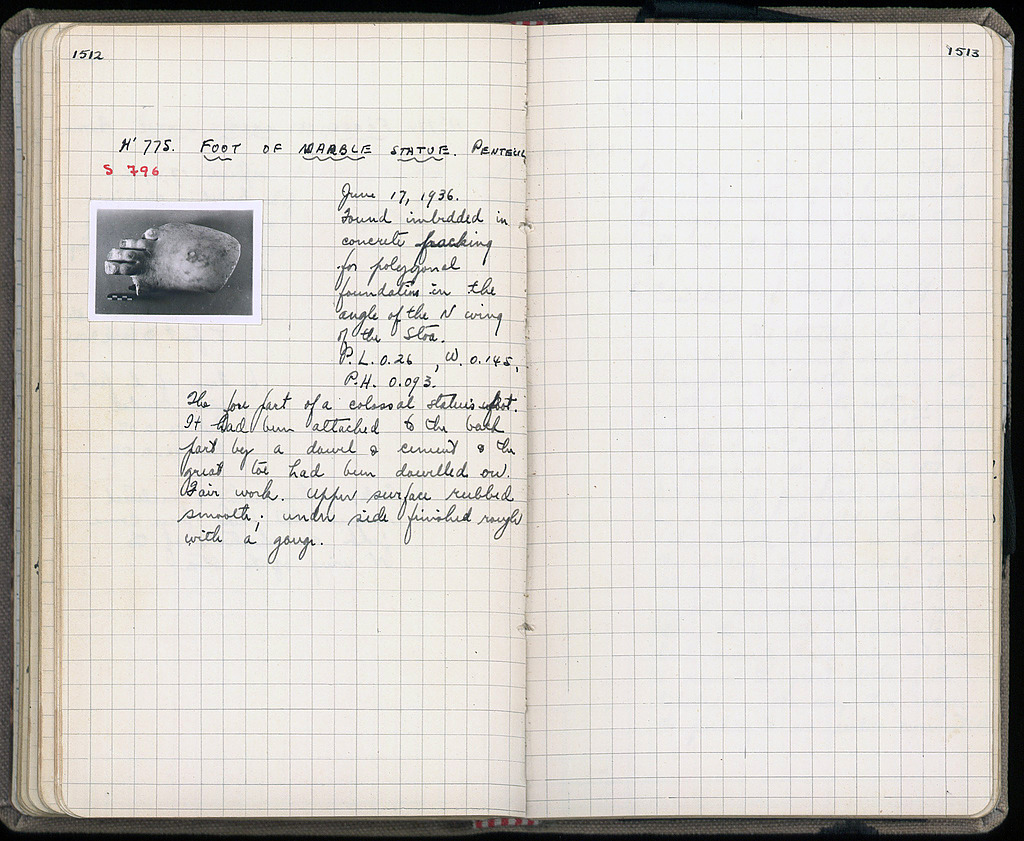 1512
1513
H' 775. FOOT OF MARBLE STATUE. PENTELI
S 796
June 17, 1936.
Found imbedded in
concrete packing
for polygonal
foundation in the
angle of the N wing
of the Stoa.
P.L. 0.26, W. 0.145,
P.H. 0.093.
The fore part of a colossal statue's foot.
It had been attached to the back
part by a dowel & cement & the
great toe had been dowelled on.
Fair work. Upper surface rubbed
smooth; under side finished rough
with a gouge.